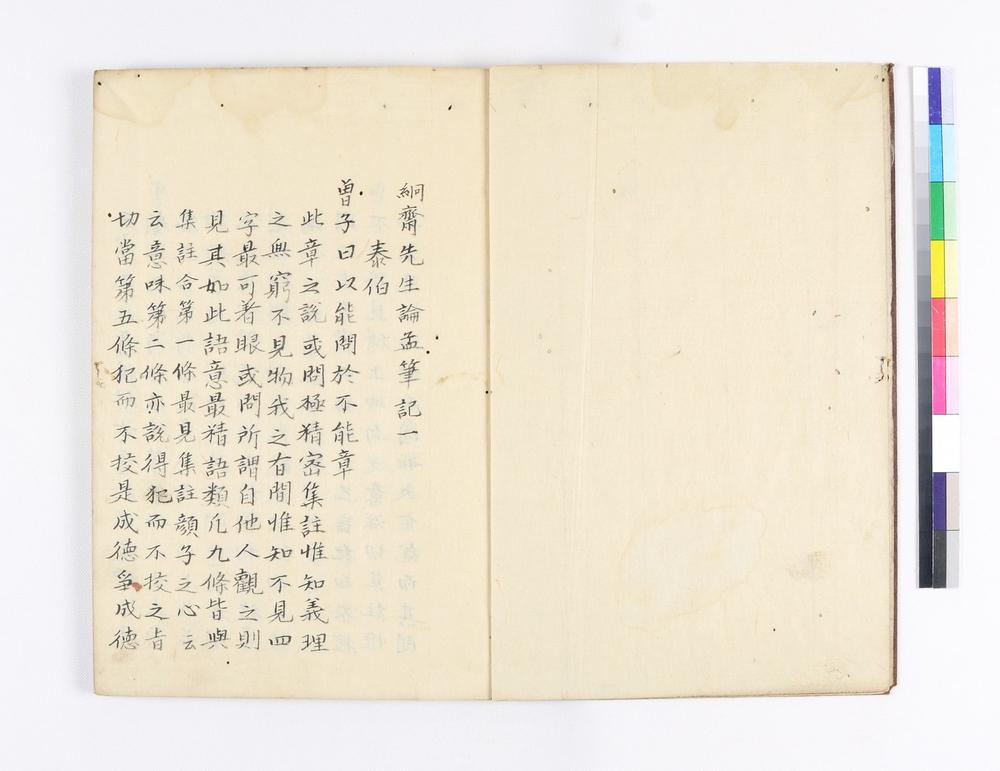 絅齋先生論孟筆記一
泰伯
曽子曰以能問於不能章
此章之說或問極精密集註惟知義理
之無窮不見物我之有間惟知不見四
字最可着眼或問所謂自他人觀之則
見其如此語意最精語類凢九條皆與
集註合第一條最見集註顔子之心云
云意味第二條亦說得犯而不挍之旨
切當第五條犯而不挍是成德事成德